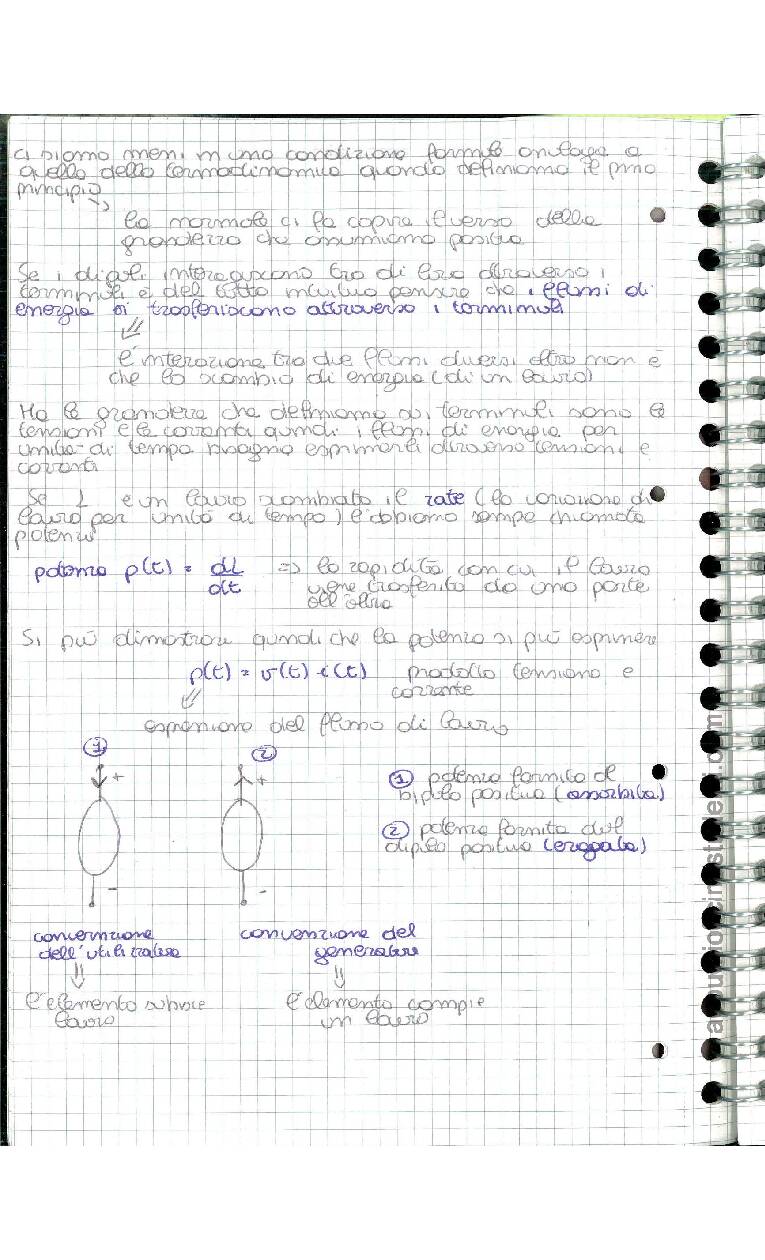 ci siamo messi in una condizione formale analoga a
quella della termodinamica quando definiamo il primo
principio
la normale ci fa capire il verso della
grandezza che assumiamo positiva
Se i dipoli interagiscono tra di loro attraverso i
terminali è del tutto intuitivo pensare che i flussi di
energia si trasferiscono attraverso i terminali
l'interazione tra due flussi diversi altro non è
che lo scambio di energia (di un lavoro)
Ma le grandezze che definiamo ai terminali sono le
tensioni e le correnti quindi i flussi di energia per
unità di tempo bisogna esprimerli attraverso tensioni e
correnti
Se L è un lavoro scambiato il rate (la variazione di
lavoro per unità di tempo) l'abbiamo sempre chiamata
potenza
potenza p(t) = dL/dt => la rapidità con cui il lavoro
viene trasferito da una parte
all'altra
Si può dimostrare quindi che la potenza si può esprimere
p(t) = v(t) i(t) prodotto tensione e
corrente
espressione del flusso di lavoro
1 2
+ +
1 potenza fornita al
bipolo positiva (assorbita)
2 potenza fornita dal
dipolo positiva (erogata)
- -
convenzione
dell'utilizzatore
convenzione del
generatore
l'elemento subisce
lavoro
l'elemento compie
un lavoro